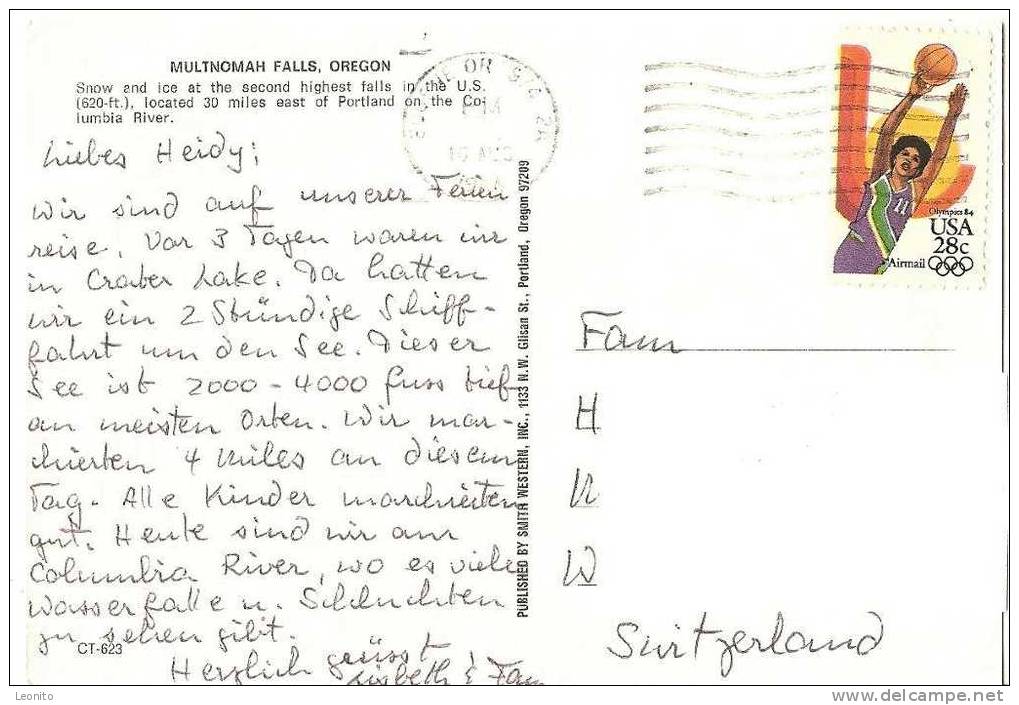 MULTNOMAH FALLS, OREGON
Snow and ice at the second highest falls in the U.S.
(620-ft.), located 30 miles east of Portland on the Co-
lumbia River.
Liebes Heidy;
Wir sind auf unserer Ferien
reise. Vor 3 Tagen waren wir
in Crater Lake. Da hatten
wir ein 2 Stündige Schiff-
fahrt um den See. Dieser
See ist 2000-4000 fuss tief
an meisten Orten. Wir mar-
chierten 4 Miles an diesem
Tag. Alle Kinder marchierten
gut. Heute sind wir am
Columbia River, wo es viele
Wasserfälle u. Schluchten
zu sehen gibt.
CT-623
Herzlich grüsst
Lisbeth & Fam
PUBLISHED BY SMITH WESTERN, INC., 1133 N.W. Glisan St., Portland, Oregon 97209
OR
AUG
Olympics 84
USA
28c
Airmail
11
Fam
H
W
Switzerland
Leonito
www.delcampe.net